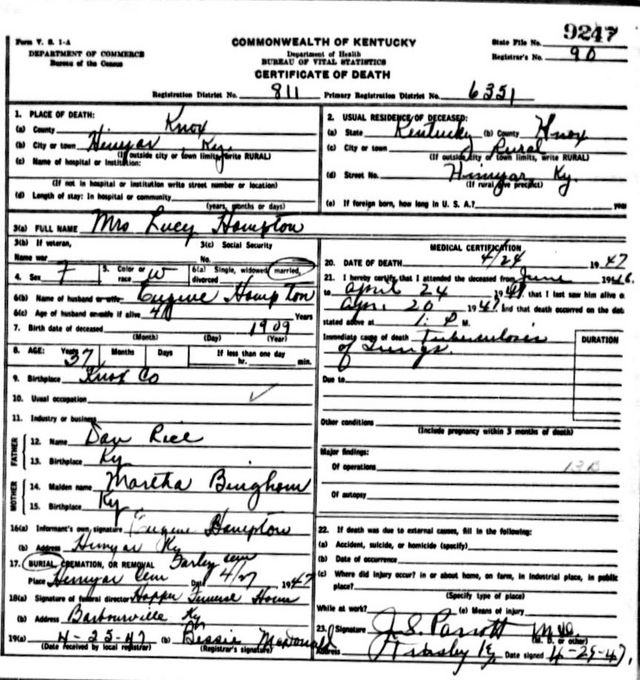 9247
Form V. S. 1-A
COMMONWEALTH OF KENTUCKY
State File No.
DEPARTMENT OF COMMERCE
Bureau of the Census
Department of Health
BUREAU OF VITAL STATISTICS
Registrar's No. 90
CERTIFICATE OF DEATH
Registration District No. 811 Primary Registration District No. 6351
1. PLACE OF DEATH:
(a) County Knox
(b) City or town Himyar Ky.
(If outside city or town limits, write RURAL)
(c) Name of hospital or institution:
(If not in hospital or institution write street number or location)
(d) Length of stay: In hospital or community
(years, months or days)
2. USUAL RESIDENCE OF DECEASED:
(a) State Kentucky (b) County Knox
(c) City or town Rural
(If outside city or town limits, write RURAL)
(d) Street No. Himyar Ky.
(If rural give precinct)
(e) If foreign born, how long in U. S. A.? years
3(a) FULL NAME Mrs Lucy Hampton
3(b) If veteran,
Name war
3(c) Social Security
No.
4. Sex F 5. Color or race W 6(a) Single, widowed, married, divorced
6(b) Name of husband or wife Eugene Hampton
6(c) Age of husband or wife if alive Years
7. Birth date of deceased 1909
(Month) (Day) (Year)
8. AGE: Years 37 Months Days If less than one day
hr. min.
9. Birthplace Knox Co
10. Usual occupation
11. Industry or business
FATHER
12. Name Dan Rice
13. Birthplace Ky
MOTHER
14. Maiden name Martha Bingham
15. Birthplace Ky
16(a) Informant's own signature Eugene Hampton
(b) Address Himyar Ky
17. BURIAL, CREMATION, OR REMOVAL
Place Himyar Cem Date 4/27 1947
18(a) Signature of funeral director Hopper Funeral Home
(b) Address Barbourville Ky
19(a) 4-25-47 (b) Bessie McDonald
(Date received by local registrar) (Registrar's signature)
MEDICAL CERTIFICATION
20. DATE OF DEATH 4/24 1947
21. I hereby certify that I attended the deceased from June 1946
to April 24 1947 that I last saw him alive on
Apr. 20 1947 and that death occurred on the date
stated above at 1. P M.
Immediate cause of death Tuberculosis
of Lungs.
DURATION
Due to
Other conditions
(Include pregnancy within 3 months of death)
Major findings:
Of operations
Of autopsy
22. If death was due to external causes, fill in the following:
(a) Accident, suicide, or homicide (specify)
(b) Date of occurrence
(c) Where did injury occur? in or about home, on farm, in industrial place, in public
place?
(Specify type of place)
While at work? (e) Means of injury
23. Signature J. S. Parrott M.D.
(M. D. or other)
Address Date signed 4-25-47.